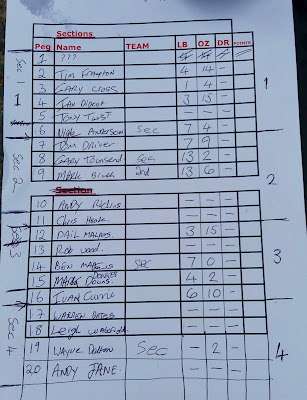 Sections
Peg Name TEAM LB OZ DR POINTS
1 ???
2 Tim Frampton 4 14 –
3 GARY CROSS 1 4 –
4 IAN 3 15 –
5 TONY TWIST – – –
6 Nick Anderson Sec 7 4 –
7 TOM DRIVER 7 9 –
8 GARY Townsend Sec 13 2 –
9 Mark 2nd 13 6 –
Section
10 ANDY – – –
11 Chris – – –
12 3 15 –
13 Rob wood – – –
14 BEN Sec 7 0 –
15 MARK DOWNES 4 2 –
16 IVAN Currie 6 10 –
17 WARREN BATES – – –
18 Leigh – – –
19 WAYNE Sec – 2 –
20 ANDY JANE – – –
Sec
1
Sec 2
3
Sec 4
1
2
3
4